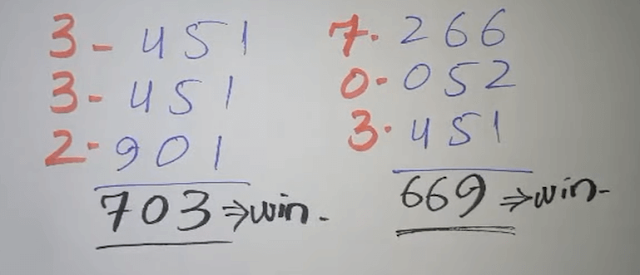 3 - 451
3 - 451
2 - 901
703 ⇒ win.
7. 266
0 - 052
3. 451
669 ⇒ win-